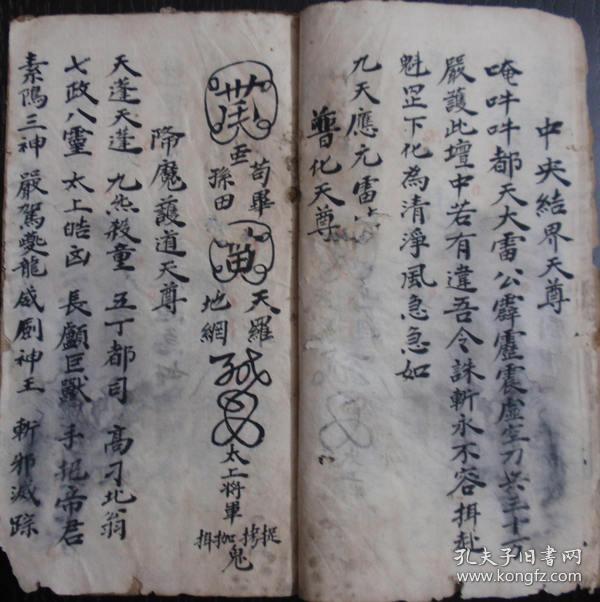 中央結界天尊
唵吽吽都天大雷公霹靂震虛空刀兵三十
嚴護此壇中若有違吾令誅斬永不容揖赦
魁罡下化為清淨風急急如
九天應元雷
普化天尊
苟畢
孫田
天羅
地網
太上將軍
捉拷枷揖鬼
降魔護道天尊
天蓬天蓬 九炁殺童 五丁都司 高刁北翁
七政八靈 太上皓凶 長顱巨獸 手把帝君
素隝三神 嚴駕夔龍 威劍神王 斬邪滅踪
孔夫子旧書网
www.kongfz.com